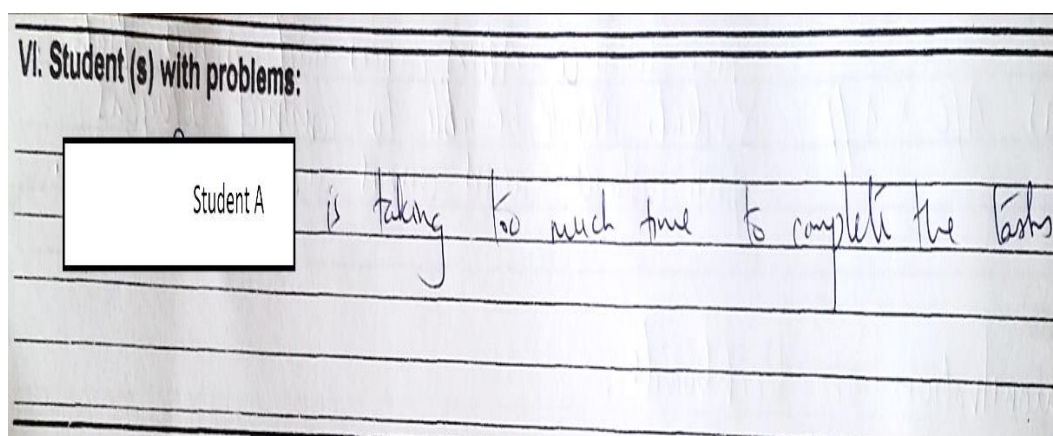 VI. Student (s) with problems:
Student A is taking too much time to complete the tasks